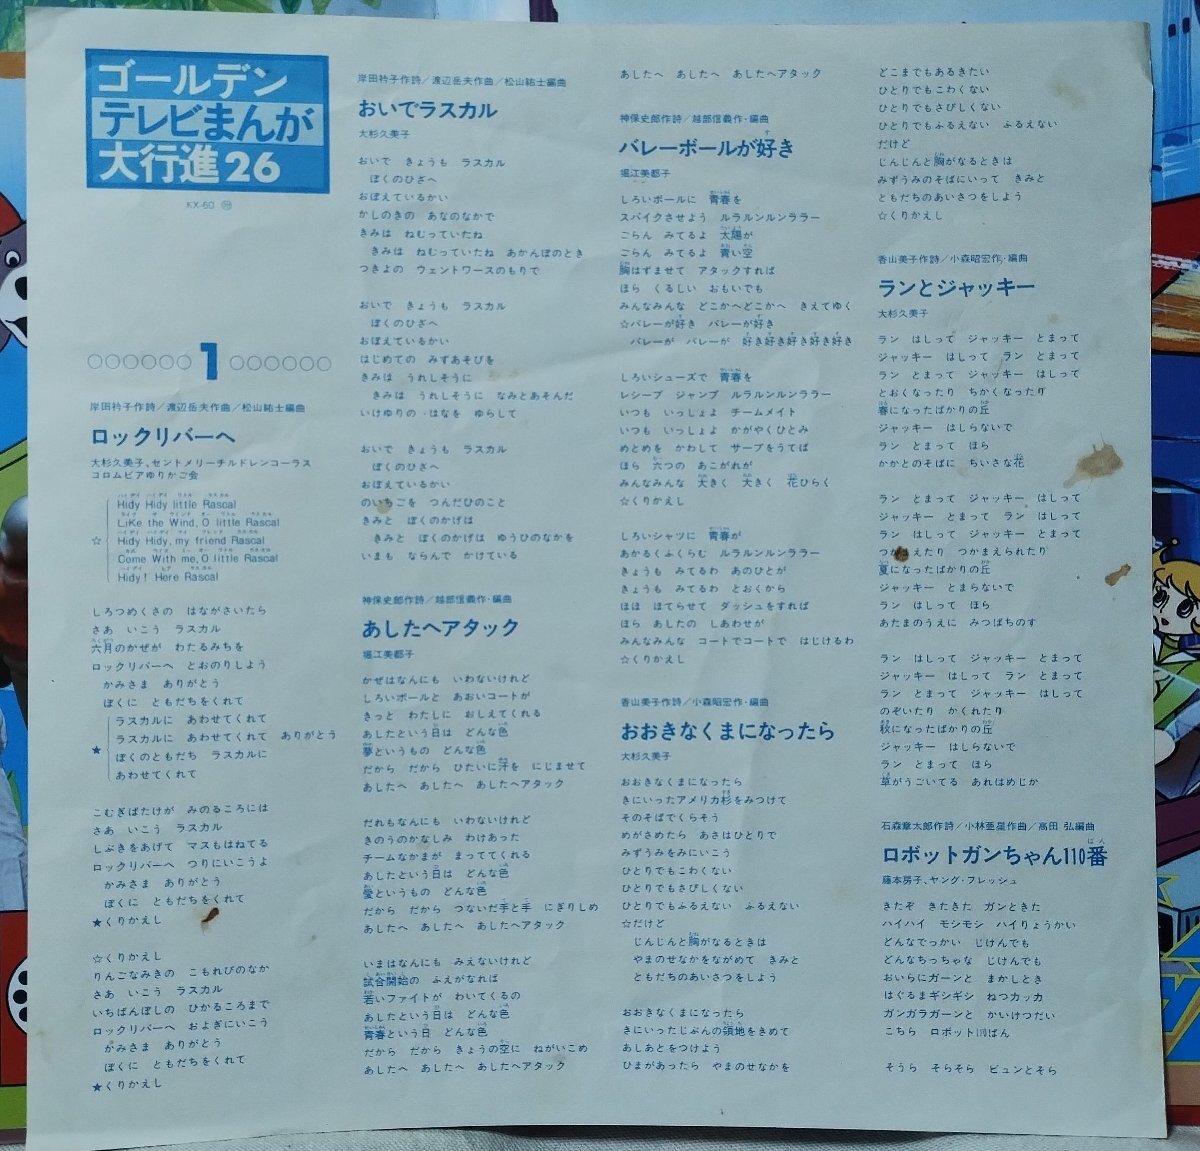 ゴールデン
テレビまんが
大行進26
KX-60
1
岸田衿子作詩／渡辺岳夫作曲／松山祐士編曲
ロックリバーへ
大杉久美子、セントメリーチルドレンコーラス
コロムビアゆりかご会
Hidy Hidy little Rascal
Like the Wind, O little Rascal
☆ Hidy Hidy, my friend Rascal
Come With me, O little Rascal
Hidy! Here Rascal
しろつめくさの　はながさいたら
さあ　いこう　ラスカル
六月のかぜが　わたるみちを
ロックリバーへ　とおのりしよう
かみさま　ありがとう
ぼくに　ともだちをくれて
ラスカルに　あわせてくれて
ラスカルに　あわせてくれて　ありがとう
★ ぼくのともだち　ラスカルに
あわせてくれて
こむぎばたけが　みのるころには
さあ　いこう　ラスカル
しぶきをあげて　マスもはねてる
ロックリバーへ　つりにいこうよ
かみさま　ありがとう
ぼくに　ともだちをくれて
★くりかえし
☆くりかえし
りんごなみきの　こもれびのなか
さあ　いこう　ラスカル
いちばんぼしの　ひかるころまで
ロックリバーへ　およぎにいこう
かみさま　ありがとう
ぼくに　ともだちをくれて
★くりかえし
岸田衿子作詩／渡辺岳夫作曲／松山祐士編曲
おいでラスカル
大杉久美子
おいで　きょうも　ラスカル
ぼくのひざへ
おぼえているかい
かしのきの　あなのなかで
きみは　ねむっていたね
きみは　ねむっていたね　あかんぼのとき
つきよの　ウェントワースのもりで
おいで　きょうも　ラスカル
ぼくのひざへ
おぼえているかい
はじめての　みずあそびを
きみは　うれしそうに
きみは　うれしそうに　なみとあそんだ
いけゆりの　はなを　ゆらして
おいで　きょうも　ラスカル
ぼくのひざへ
おぼえているかい
のいちごを　つんだひのこと
きみと　ぼくのかげは
きみと　ぼくのかげは　ゆうひのなかを
いまも　ならんで　かけている
神保史郎作詩／越部信義作・編曲
あしたへアタック
堀江美都子
かぜはなんにも　いわないけれど
しろいボールと　あおいコートが
きっと　わたしに　おしえてくれる
あしたという日は　どんな色
夢というもの　どんな色
だから　だから　ひたいに汗を　にじませて
あしたへ　あしたへ　あしたへアタック
だれもなんにも　いわないけれど
きのうのかなしみ　わけあった
チームなかまが　まっててくれる
あしたという日は　どんな色
愛というもの　どんな色
だから　だから　つないだ手と手　にぎりしめ
あしたへ　あしたへ　あしたへアタック
いまはなんにも　みえないけれど
試合開始の　ふえがなれば
若いファイトが　わいてくるの
あしたという日は　どんな色
青春という日　どんな色
だから　だから　きょうの空に　ねがいこめ
あしたへ　あしたへ　あしたへアタック
あしたへ　あしたへ　あしたへアタック
神保史郎作詩／越部信義作・編曲
バレーボールが好き
堀江美都子
しろいボールに　青春を
スパイクさせよう　ルラルンルンララー
ごらん　みてるよ　太陽が
ごらん　みてるよ　青い空
胸はずませて　アタックすれば
ほら　くるしい　おもいでも
みんなみんな　どこかへどこかへ　きえてゆく
☆バレーが好き　バレーが好き
バレーが　バレーが　好き好き好き好き好き
しろいシューズで　青春を
レシーブ　ジャンプ　ルラルンルンララー
いつも　いっしょよ　チームメイト
いつも　いっしょよ　かがやくひとみ
めとめを　かわして　サーブをうてば
ほら　六つの　あこがれが
みんなみんな　大きく　大きく　花ひらく
☆くりかえし
しろいシャツに　青春が
あかるくふくらむ　ルラルンルンララー
きょうも　みてるわ　あのひとが
きょうも　みてるわ　とおくから
ほほ　ほてらせて　ダッシュをすれば
ほら　あしたの　しあわせが
みんなみんな　コートでコートで　はじけるわ
☆くりかえし
香山美子作詩／小森昭宏作・編曲
おおきなくまになったら
大杉久美子
おおきなくまになったら
きにいったアメリカ杉をみつけて
そのそばでくらそう
めがさめたら　あさはひとりで
みずうみをみにいこう
ひとりでもこわくない
ひとりでもさびしくない
ひとりでもふるえない　ふるえない
☆だけど
じんじんと胸がなるときは
やまのせなかをながめて　きみと
ともだちのあいさつをしよう
おおきなくまになったら
きにいったじぶんの領地をきめて
あしあとをつけよう
ひまがあったら　やまのせなかを
どこまでもあるきたい
ひとりでもこわくない
ひとりでもさびしくない
ひとりでもふるえない　ふるえない
だけど
じんじんと胸がなるときは
みずうみのそばにいって　きみと
ともだちのあいさつをしよう
☆くりかえし
香山美子作詩／小森昭宏作・編曲
ランとジャッキー
大杉久美子
ラン　はしって　ジャッキー　とまって
ジャッキー　はしって　ラン　とまって
ラン　とまって　ジャッキー　はしって
とおくなったり　ちかくなったり
春になったばかりの丘
ジャッキー　はしらないで
ラン　とまって　ほら
かかとのそばに　ちいさな花
ラン　とまって　ジャッキー　はしって
ジャッキー　とまって　ラン　はしって
ラン　はしって　ジャッキー　とまって
つかまえたり　つかまえられたり
夏になったばかりの丘
ジャッキー　とまらないで
ラン　はしって　ほら
あたまのうえに　みつばちのす
ラン　はしって　ジャッキー　とまって
ジャッキー　はしって　ラン　とまって
ラン　とまって　ジャッキー　はしって
のぞいたり　かくれたり
秋になったばかりの丘
ジャッキー　はしらないで
ラン　とまって　ほら
草がうごいてる　あれはめじか
石森章太郎作詩／小林亜星作曲／高田 弘編曲
ロボットガンちゃん110番
藤本房子、ヤング・フレッシュ
きたぞ　きたきた　ガンときた
ハイハイ　モシモシ　ハイりょうかい
どんなでっかい　じけんでも
どんなちっちゃな　じけんでも
おいらにガーンと　まかしとき
はぐるまギシギシ　ねつカッカ
ガンガラガーンと　かいけつだい
こちら　ロボット110ばん
そうら　そらそら　ビュンとそら